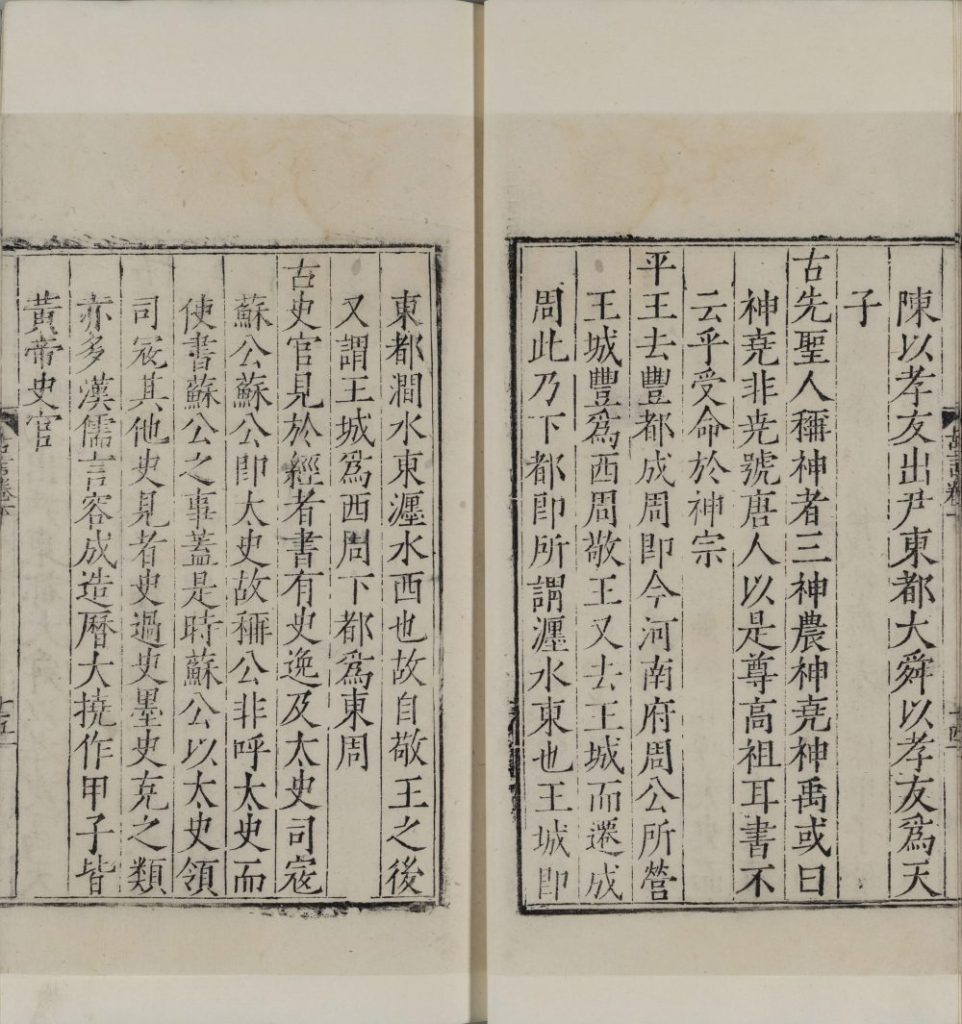 陳以孝友出尹東都大舜以孝友爲天
子
古先聖人稱神者三神農神尭神禹或曰
神尭非尭號唐人以是尊高祖耳書不
云乎受命於神宗
平王去豐都成周即今河南府周公所營
王城豐爲西周敬王又去王城而遷成
周此乃下都即所謂瀍水東也王城即
東都澗水東瀍水西也故自敬王之後
又謂王城爲西周下都爲東周
古史官見於經者書有史逸及太史司寇
蘇公蘇公即太史故稱公非呼太史而
使書蘇公之事蓋是時蘇公以太史領
司寇其他史見者史過史墨史克之類
亦多漢儒言容成造曆大撓作甲子皆
黃帝史官